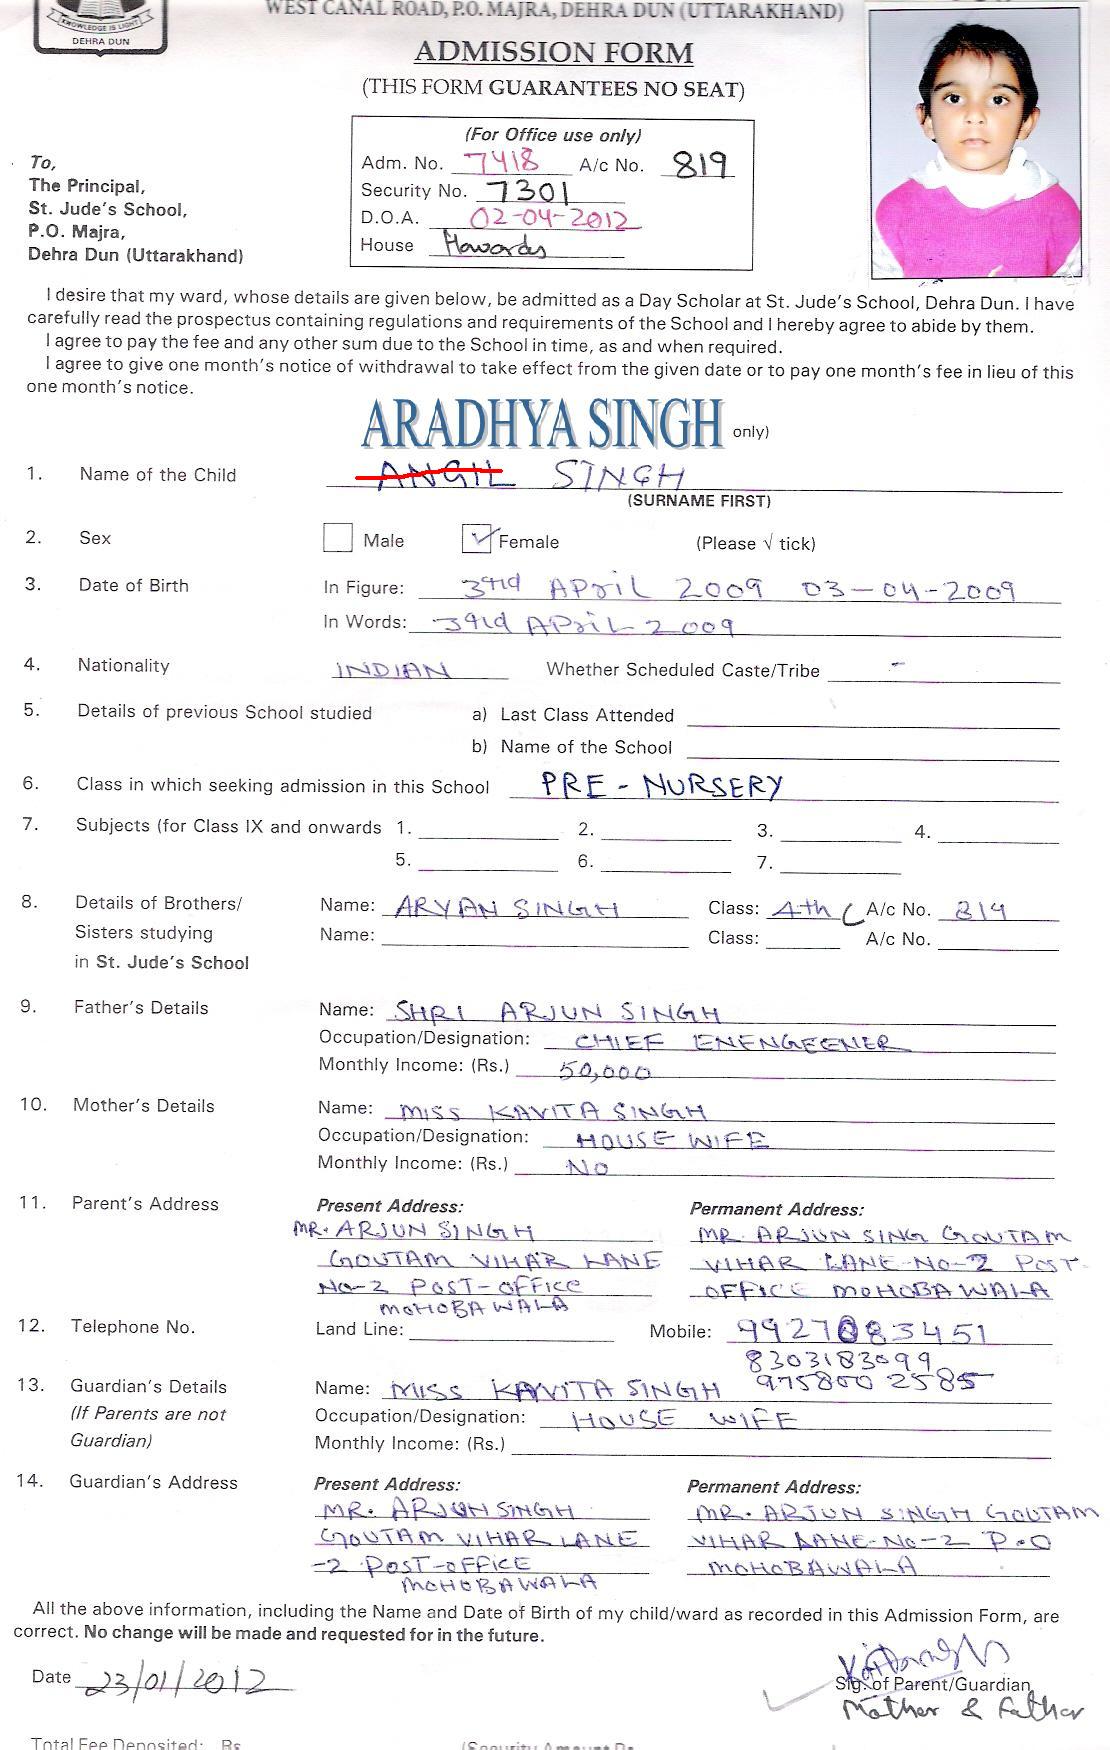 KNOWLEDGE IS LIGHT
DEHRA DUN
WEST CANAL ROAD, P.O. MAJRA, DEHRA DUN (UTTARAKHAND)
ADMISSION FORM
(THIS FORM GUARANTEES NO SEAT)
(For Office use only)
Adm. No. 7418 A/c No. 819
Security No. 7301
D.O.A. 02-04-2012
House Howards
To,
The Principal,
St. Jude's School,
P.O. Majra,
Dehra Dun (Uttarakhand)
I desire that my ward, whose details are given below, be admitted as a Day Scholar at St. Jude's School, Dehra Dun. I have
carefully read the prospectus containing regulations and requirements of the School and I hereby agree to abide by them.
I agree to pay the fee and any other sum due to the School in time, as and when required.
I agree to give one month's notice of withdrawal to take effect from the given date or to pay one month's fee in lieu of this
one month's notice.
ARADHYA SINGH only)
1. Name of the Child ANGIL SINGH
(SURNAME FIRST)
2. Sex Male Female (Please √ tick)
3. Date of Birth In Figure: 3rd April 2009 03-04-2009
In Words: 3rd April 2009
4. Nationality INDIAN Whether Scheduled Caste/Tribe -
5. Details of previous School studied a) Last Class Attended
b) Name of the School
6. Class in which seeking admission in this School PRE - NURSERY
7. Subjects (for Class IX and onwards 1. 2. 3. 4.
5. 6. 7.
8. Details of Brothers/ Name: ARYAN SINGH Class: 4th C A/c No. 819
Sisters studying Name: Class: A/c No.
in St. Jude's School
9. Father's Details Name: SHRI ARJUN SINGH
Occupation/Designation: CHIEF ENENGEENER
Monthly Income: (Rs.) 50,000
10. Mother's Details Name: MISS KAVITA SINGH
Occupation/Designation: HOUSE WIFE
Monthly Income: (Rs.) NO
11. Parent's Address Present Address: Permanent Address:
MR. ARJUN SINGH MR. ARJUN SING GOUTAM
GOUTAM VIHAR LANE VIHAR LANE-NO-2 POST-
NO-2 POST-OFFICE OFFICE MOHOBAWALA
MOHOBAWALA
12. Telephone No. Land Line: Mobile: 9927083451
8303183099
9758002585
13. Guardian's Details Name: MISS KAVITA SINGH
(If Parents are not Occupation/Designation: HOUSE WIFE
Guardian) Monthly Income: (Rs.)
14. Guardian's Address Present Address: Permanent Address:
MR. ARJUN SINGH MR. ARJUN SINGH GOUTAM
GOUTAM VIHAR LANE VIHAR LANE-NO-2 P.O
-2 POST-OFFICE MOHOBAWALA
MOHOBAWALA
All the above information, including the Name and Date of Birth of my child/ward as recorded in this Admission Form, are
correct. No change will be made and requested for in the future.
Date 23/01/2012
Sig. of Parent/Guardian
Mother & Father
Total Fee Deposited: Rs (Security Amount Rs